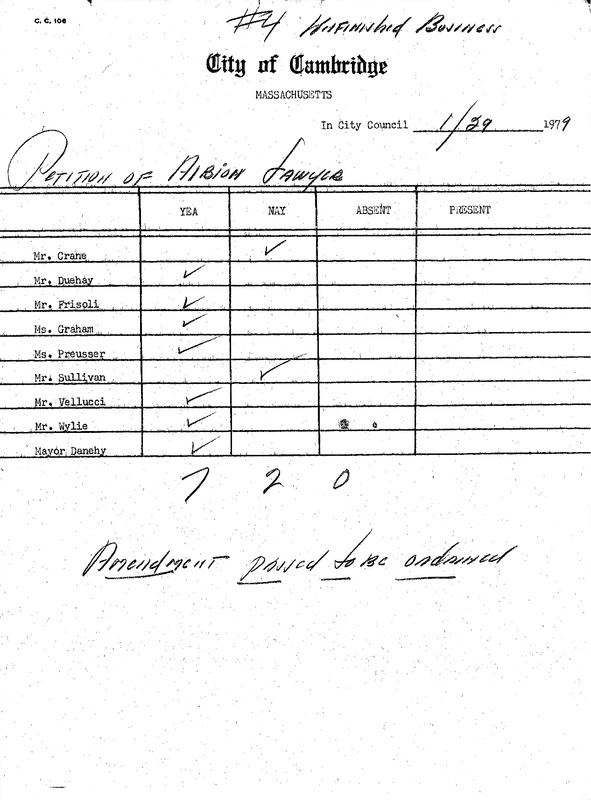 C. C. 106
#4 Unfinished Business
City of Cambridge
MASSACHUSETTS
In City Council 1/29 1979
Petition of Albion Sawyer
YEA NAY ABSENT PRESENT
Mr. Crane ✓
Mr. Duehay ✓
Mr. Frisoli ✓
Ms. Graham ✓
Ms. Preusser ✓
Mr. Sullivan ✓
Mr. Vellucci ✓
Mr. Wylie ✓
Mayor Danehy ✓
7 2 0
Amendment passed to be ordained